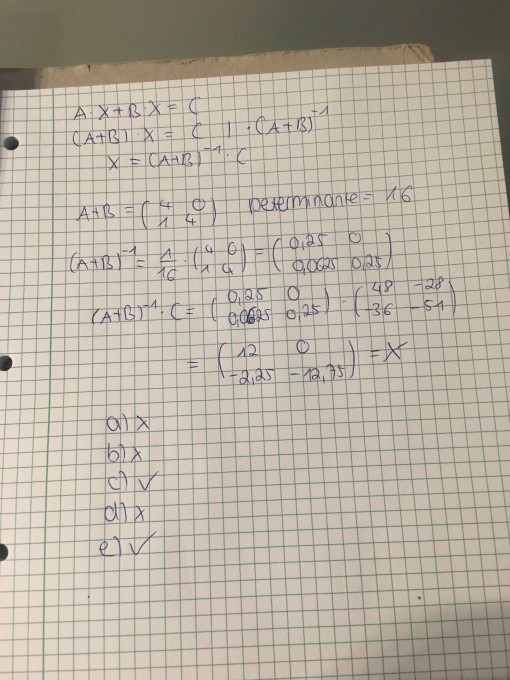 A·X+B·X= C
(A+B)·X = C | ·(A+B)⁻¹
X = (A+B)⁻¹·C
A+B = (4 0
1 4) Determinante = 16
(A+B)⁻¹ = 1/16 · (4 0
1 4) = (0,25 0
0,0625 0,25)
(A+B)⁻¹·C = (0,25 0
0,0625 0,25) · (48 -28
-36 -51)
= (12 0
-2,25 -12,75) = X
a) x
b) x
c) ✓
d) x
e) ✓